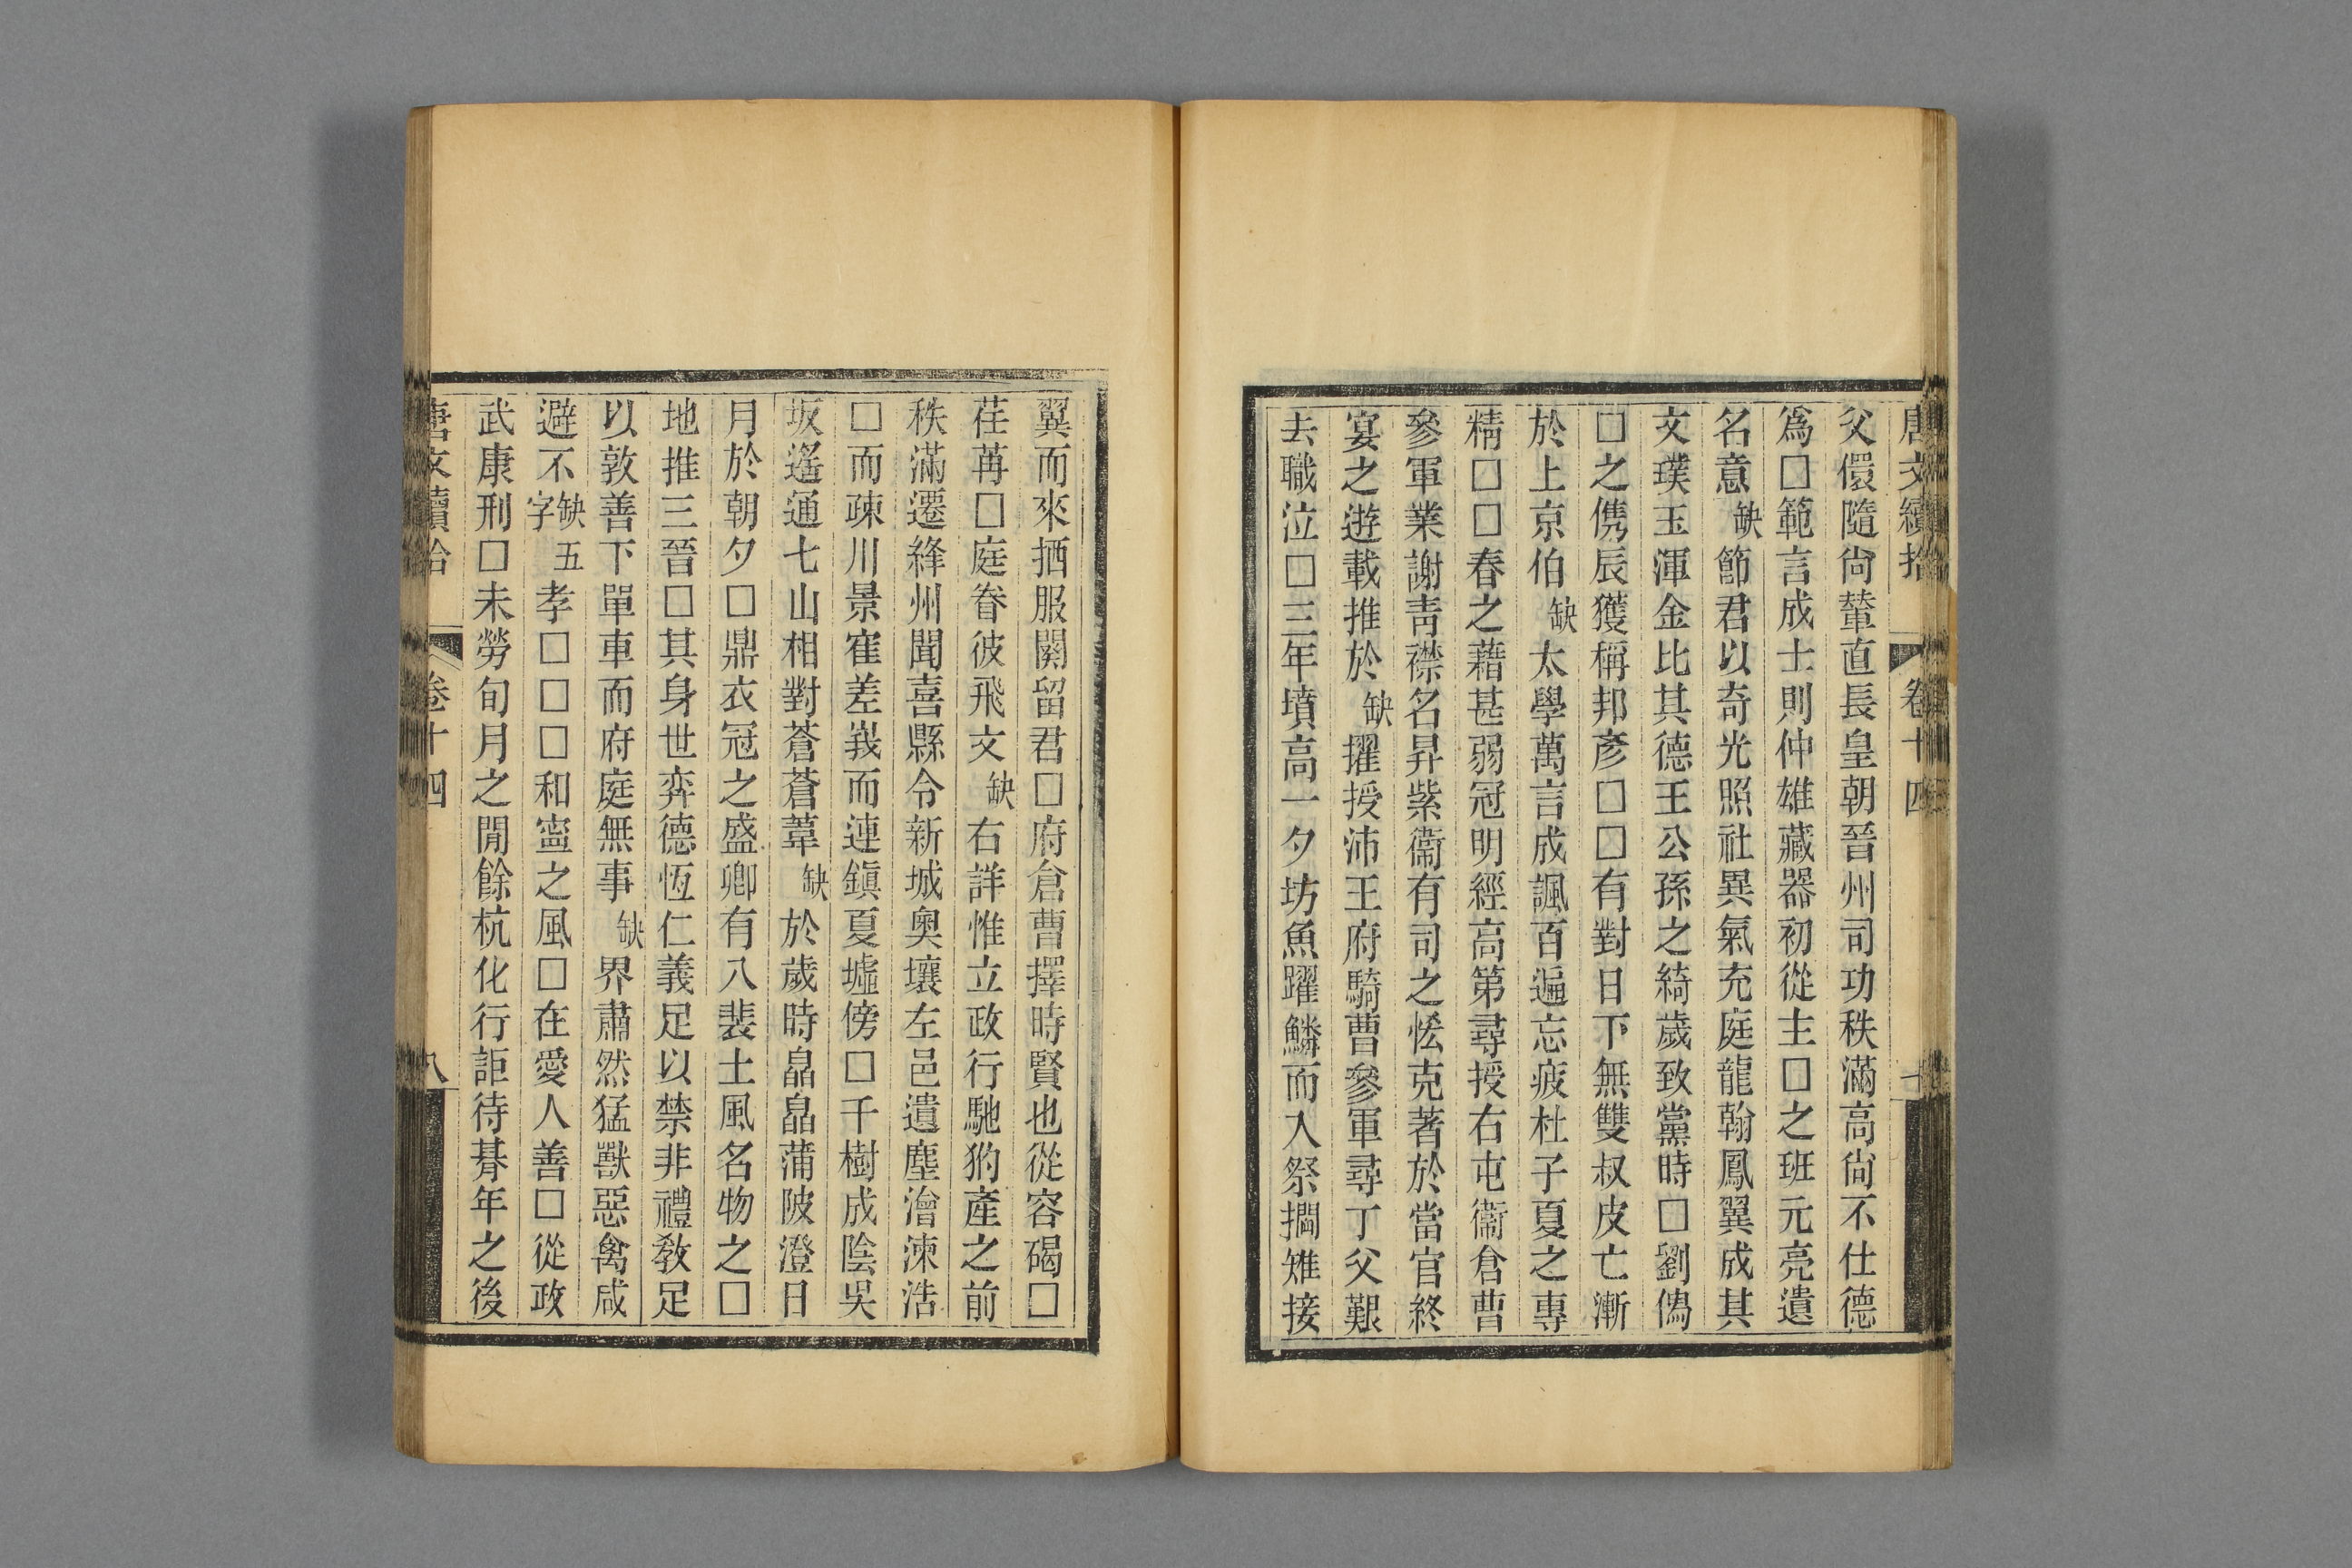 唐文續拾 卷十四
父儇隨尙輦直長皇朝晉州司功秩滿高尙不仕德
爲□範言成士則仲雄藏器初從主□之班元亮遺
名意缺節君以奇光照社異氣充庭龍翰鳳翼成其
文璞玉渾金比其德王公孫之綺歲致黨時□劉儁
□之儁辰獲稱邦彥□□有對日下無雙叔皮亡漸
於上京伯缺太學萬言成諷百遍忘疲杜子夏之專
精□□春之藉甚弱冠明經高第尋授右屯衞倉曹
參軍業謝靑襟名昇紫衞有司之恡克著於當官終
宴之遊載推於缺擢授沛王府騎曹參軍尋丁父艱
去職泣□三年墳高一夕坊魚躍鱗而入祭擱雉接
翼而來拪服闋留君□府倉曹擇時賢也從容碣□
荏苒□庭眷彼飛文缺右詳惟立政行馳犳產之前
秩滿遷絳州聞喜縣令新城奧壤左邑遺塵澮涑浩
□而疎川景寉差峩而連鎭夏墟傍□千樹成陰吳
坂遙通七山相對蒼蒼葦缺於歲時皛皛蒲陂澄日
月於朝夕□鼎衣冠之盛卿有八裴土風名物之□
地推三晉□其身世弈德恆仁義足以禁非禮敎足
以敦善下單車而府庭無事缺界肅然猛獸惡禽咸
避不缺五字孝□□□和寍之風□在愛人善□從政
武康刑□未勞旬月之閒餘杭化行詎待朞年之後
唐文續拾 卷十四 八